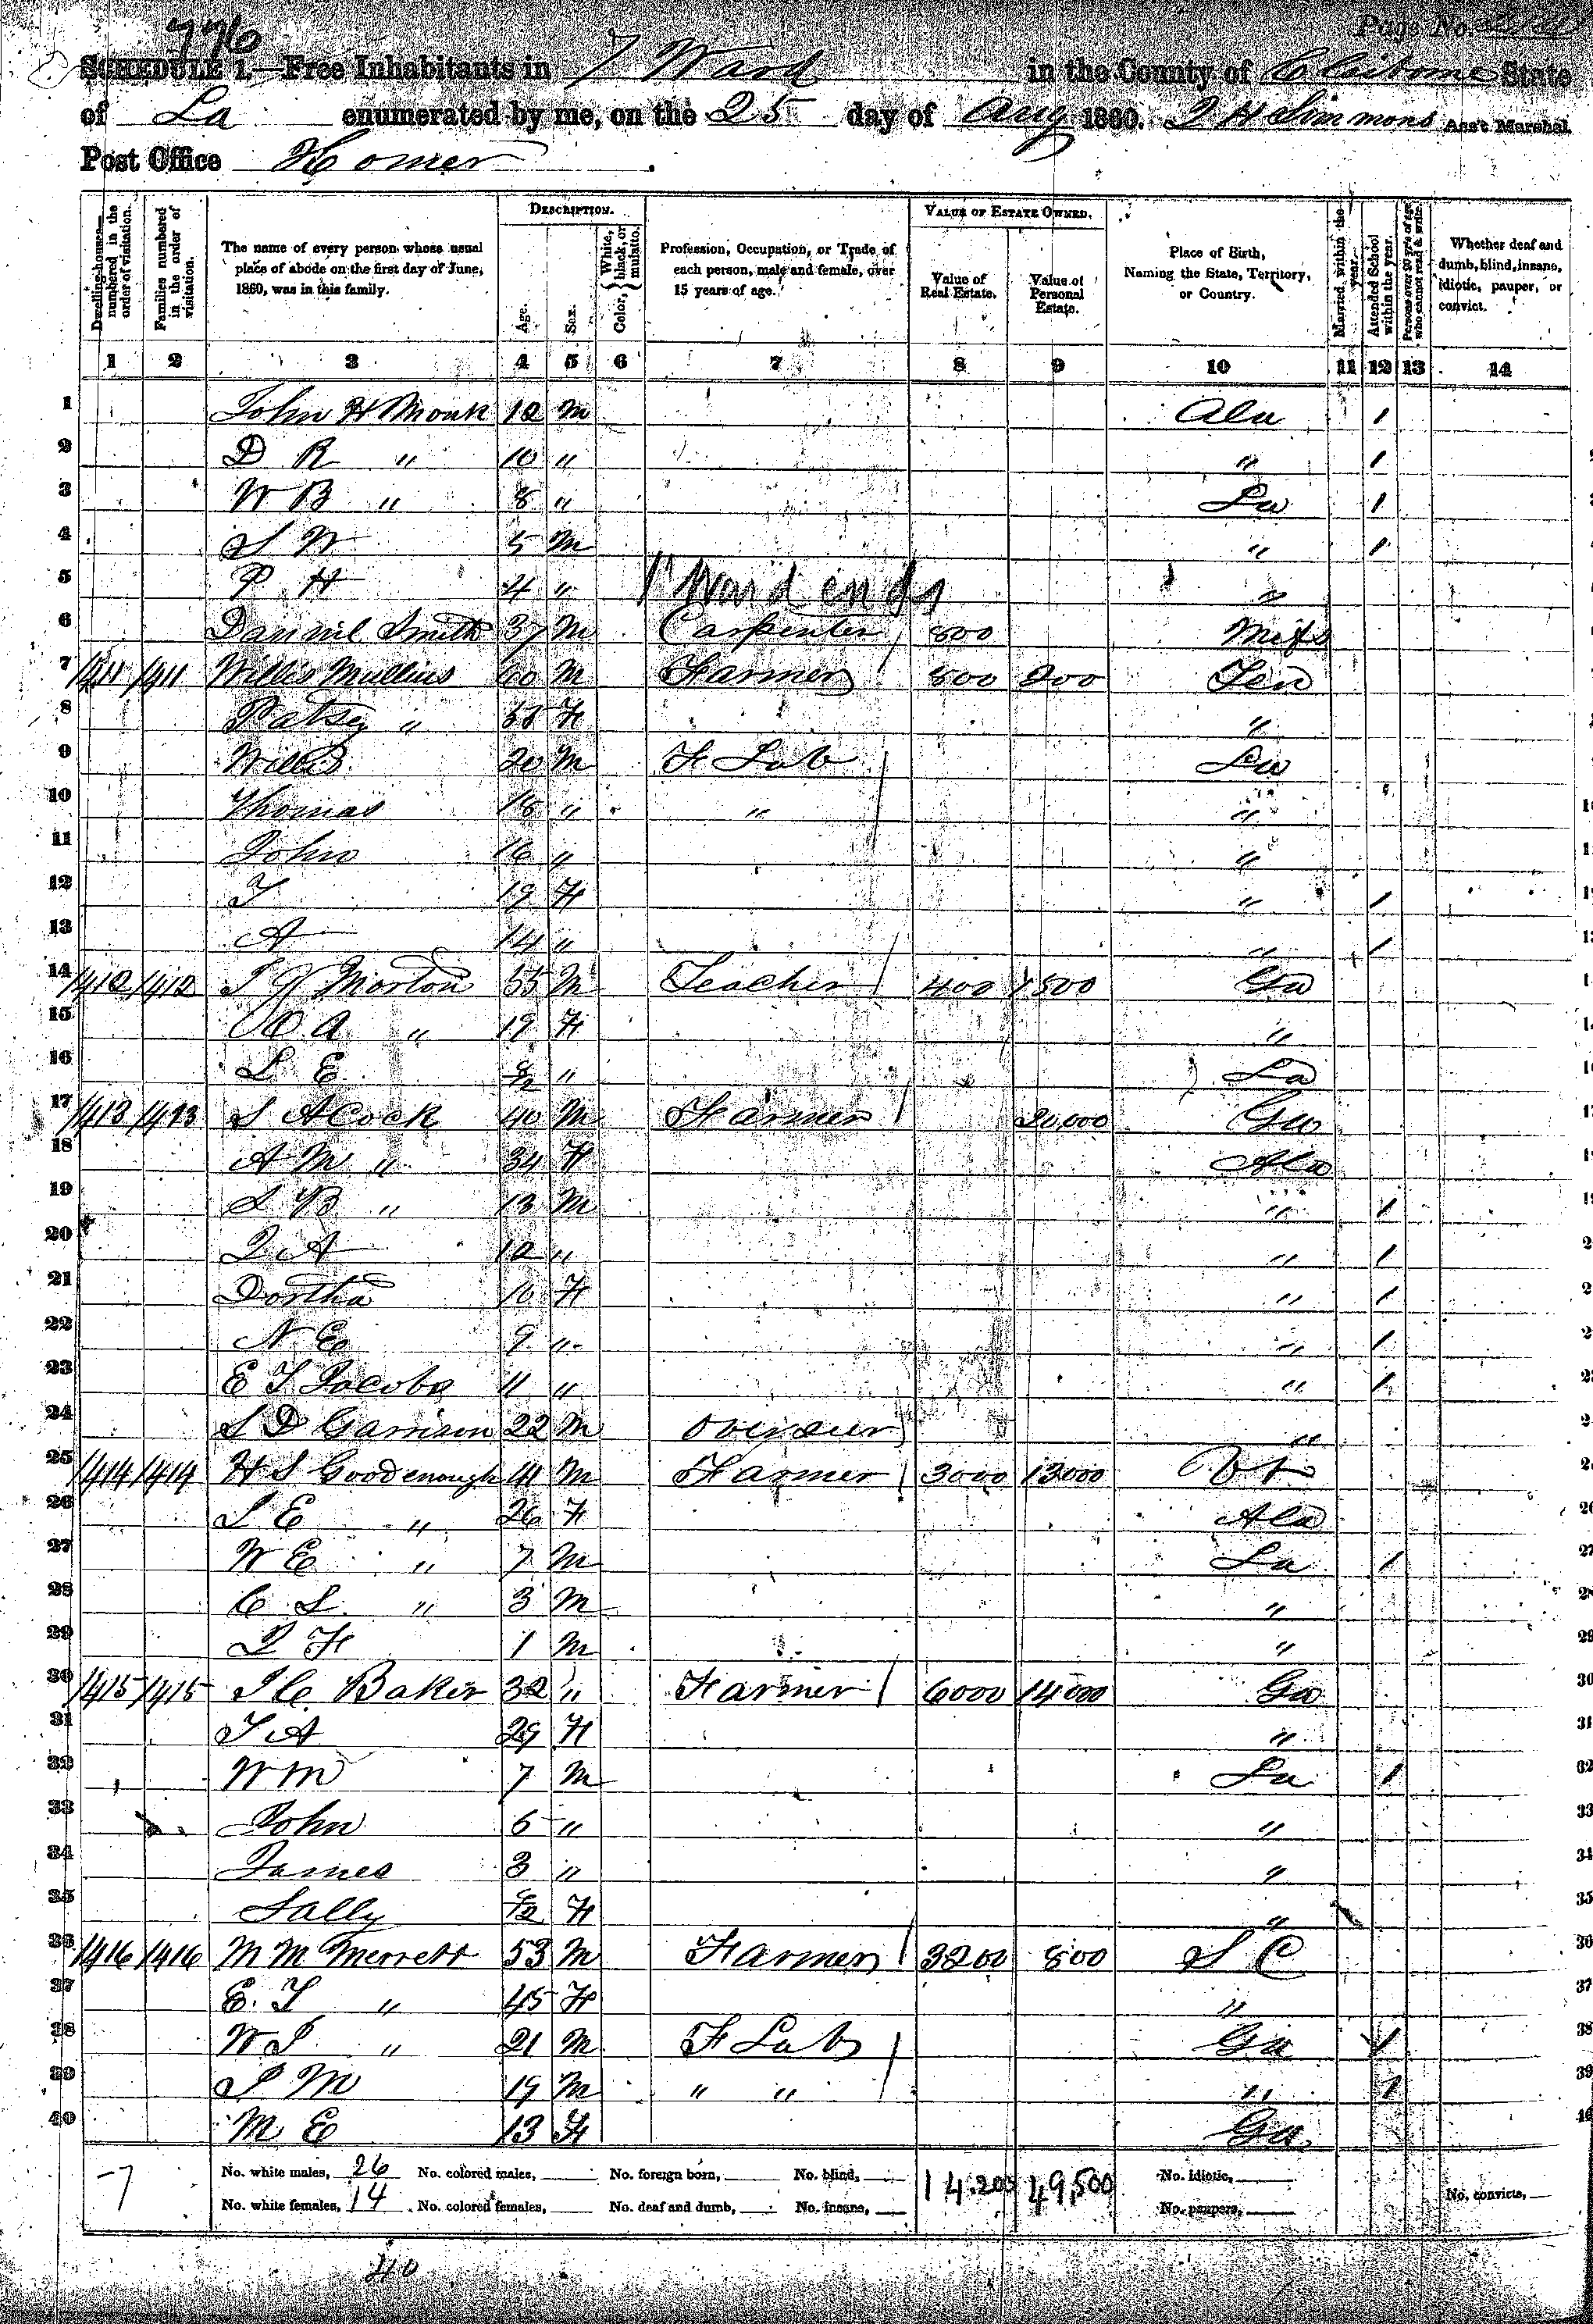 776
Page No.
SCHEDULE 1.—Free Inhabitants in 7 Ward in the County of Claiborne State
of La enumerated by me, on the 25 day of Aug 1860. J H Simmons Ass't Marshal.
Post Office Homer .
Dwelling-houses—numbered in the order of visitation. Families numbered in the order of visitation. The name of every person whose usual place of abode on the first day of June, 1860, was in this family. Description. Age. Sex. Color, White, black, or mulatto. Profession, Occupation, or Trade of each person, male and female, over 15 years of age. Value of Estate Owned. Value of Real Estate. Value of Personal Estate. Place of Birth, Naming the State, Territory, or Country. Married within the year. Attended School within the year. Persons over 20 y'rs of age who cannot read & write. Whether deaf and dumb, blind, insane, idiotic, pauper, or convict.
1 2 3 4 5 6 7 8 9 10 11 12 13 14
1 John H Monk 12 M Ala /
2 D R " 10 " " /
3 W B " 8 " La /
4 S W 5 M " /
5 P H 4 " 1" Ward ends "
6 Danniel Smith 37 M Carpenter / 800 Miss
7 1411 1411 Willis Mullins 60 M Farmer 800 200 Ten
8 Patsey " 55 F "
9 Willis 20 M F Lab / La
10 Thomas 18 " " / "
11 John 16 " "
12 J 19 F " /
13 A 14 " " /
14 1412 1412 T J Morton 55 M Teacher / 400 1500 Ga
15 O A " 19 F "
16 L E 8/12 " La
17 1413 1413 S A Cock 40 M Farmer / 20,000 Ga
18 A M " 34 F Ala
19 L B " 13 M " /
20 J A 12 " " /
21 Dortha 10 F " /
22 N E 9 " " /
23 E T Jacobs 11 " " /
24 S D Garrison 22 M Overseer "
25 1414 1414 H S Goodenough 41 M Farmer / 3000 13000 Vt
26 S E " 26 F Ala
27 W E " 7 M La /
28 C S " 3 M "
29 J H 1 M "
30 1415 1415 J C Baker 32 " Farmer / 6000 14000 Ga
31 T A 29 F "
32 W M 7 M La /
33 John 6 " "
34 James 3 " "
35 Sally F "
36 1416 1416 M M Merrett 53 M Farmer / 3200 800 S C
37 E. T " 45 F "
38 W J " 21 M F Lab / Ga /
39 J M 19 M " " / " /
40 M E 13 F Ga
-7 No. white males, 26 No. colored males, No. foreign born, No. blind, 14.200 49,500 No. idiotic,
No. white females, 14 No. colored females, No. deaf and dumb, No. insane, No. paupers, No. convicts,
40